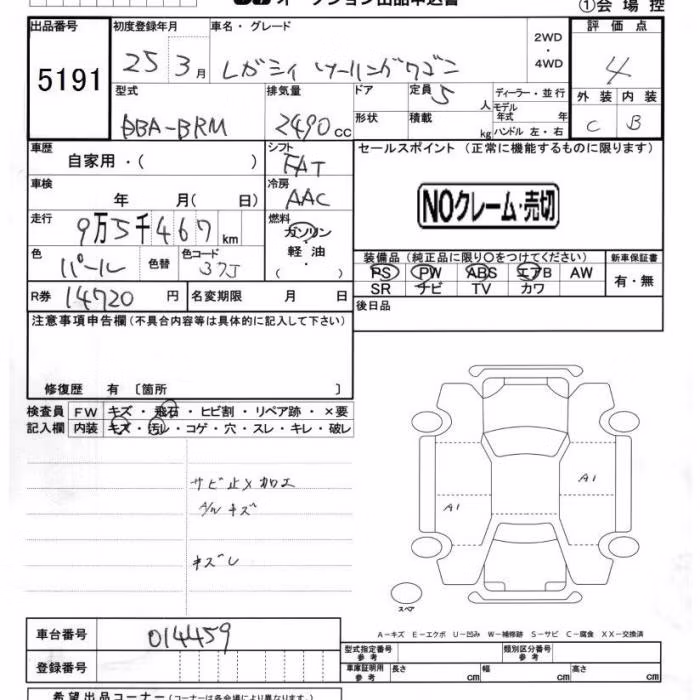 オークション出品申込書
①会場控
出品番号 初度登録年月 車名・グレード 2WD ・ 4WD 評価点
5191 25 3月 レガシィ ツーリングワゴン 4
型式 排気量 ドア 定員 5人 ディーラー・並行 外装 内装
モデル年式 年
DBA-BRM 2490cc 形状 積載 kg ハンドル 左・右 C B
車歴 シフト セールスポイント(正常に機能するものに限ります)
自家用・( ) FAT
車検 冷房 NOクレーム・売切
年 月( 日) AAC
走行 燃料
9万5千467km ガソリン
色 色替 色コード 軽油 装備品(純正品に限り○をつけてください) 新車保証書
パール 37J ( ) PS PW ABS エアB AW 有・無
SR ナビ TV カワ
R券 14720円 名変期限 月 日 後日品
注意事項申告欄(不具合内容等は具体的に記入して下さい)
修復歴 有 〔箇所 〕
検査員 FW キズ・飛石・ヒビ割・リペア跡・×要
記入欄 内装 キズ・汚レ・コゲ・穴・スレ・キレ・破レ
A1
サビ止メ加工
A1
キズ
キズレ
スペア
A-キズ E-エクボ U-凹み W-補修跡 S-サビ C-腐食 XX-交換済
車台番号 014459 型式指定番号 参考 類別区分番号 参考
登録番号 車庫証明用 参考 長さ cm 幅 cm 高さ cm
希望出品コーナー(コーナーは各会場により異なります。)